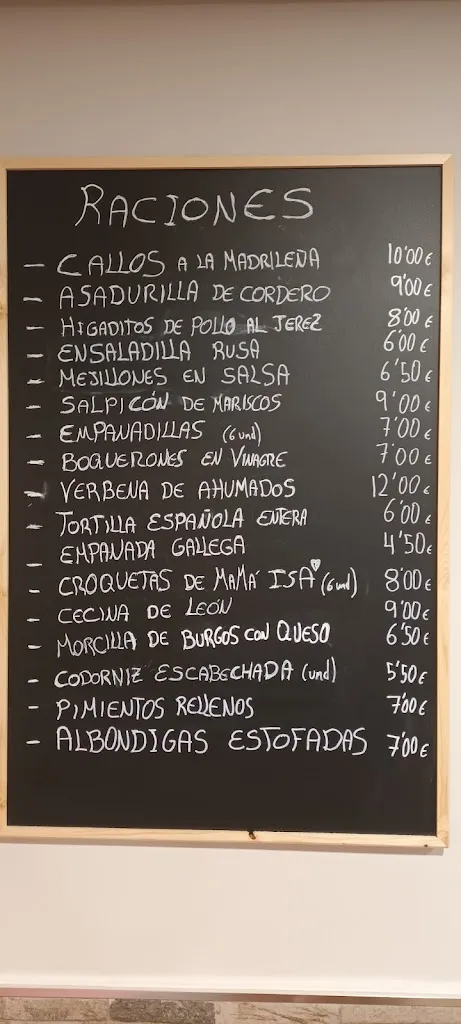 RACIONES
- CALLOS A LA MADRILEÑA 10'00€
- ASADURILLA DE CORDERO 9'00€
- HIGADITOS DE POLLO AL JEREZ 8'00€
- ENSALADILLA RUSA 6'00€
- MEJILLONES EN SALSA 6'50€
- SALPICÓN DE MARISCOS 9'00€
- EMPANADILLAS (6 und) 7'00€
- BOQUERONES EN VINAGRE 7'00€
- VERBENA DE AHUMADOS 12'00€
- TORTILLA ESPAÑOLA ENTERA 6'00€
EMPANADA GALLEGA 4'50€
- CROQUETAS DE MAMÁ ISA (6 und) 8'00€
- CECINA DE LEÓN 9'00€
- MORCILLA DE BURGOS CON QUESO 6'50€
- CODORNIZ ESCABECHADA (und) 5'50€
- PIMIENTOS RELLENOS 7'00€
- ALBONDIGAS ESTOFADAS 7'00€